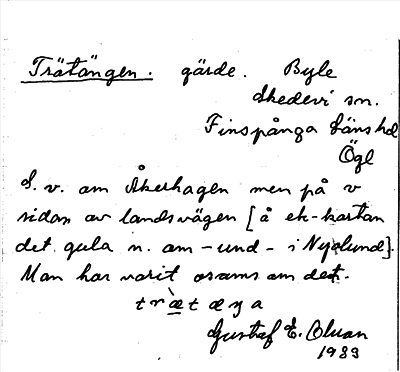 Trätängen. gärde. Byle
Skedevi sn.
Finspånga länshd
Ögl
S. v. om Åkerhagen men på v
sidan av landsvägen [å ek-kartan
det gula n. om -und- i Nyalund].
Man har varit osams om det.
Gustaf E.
1933